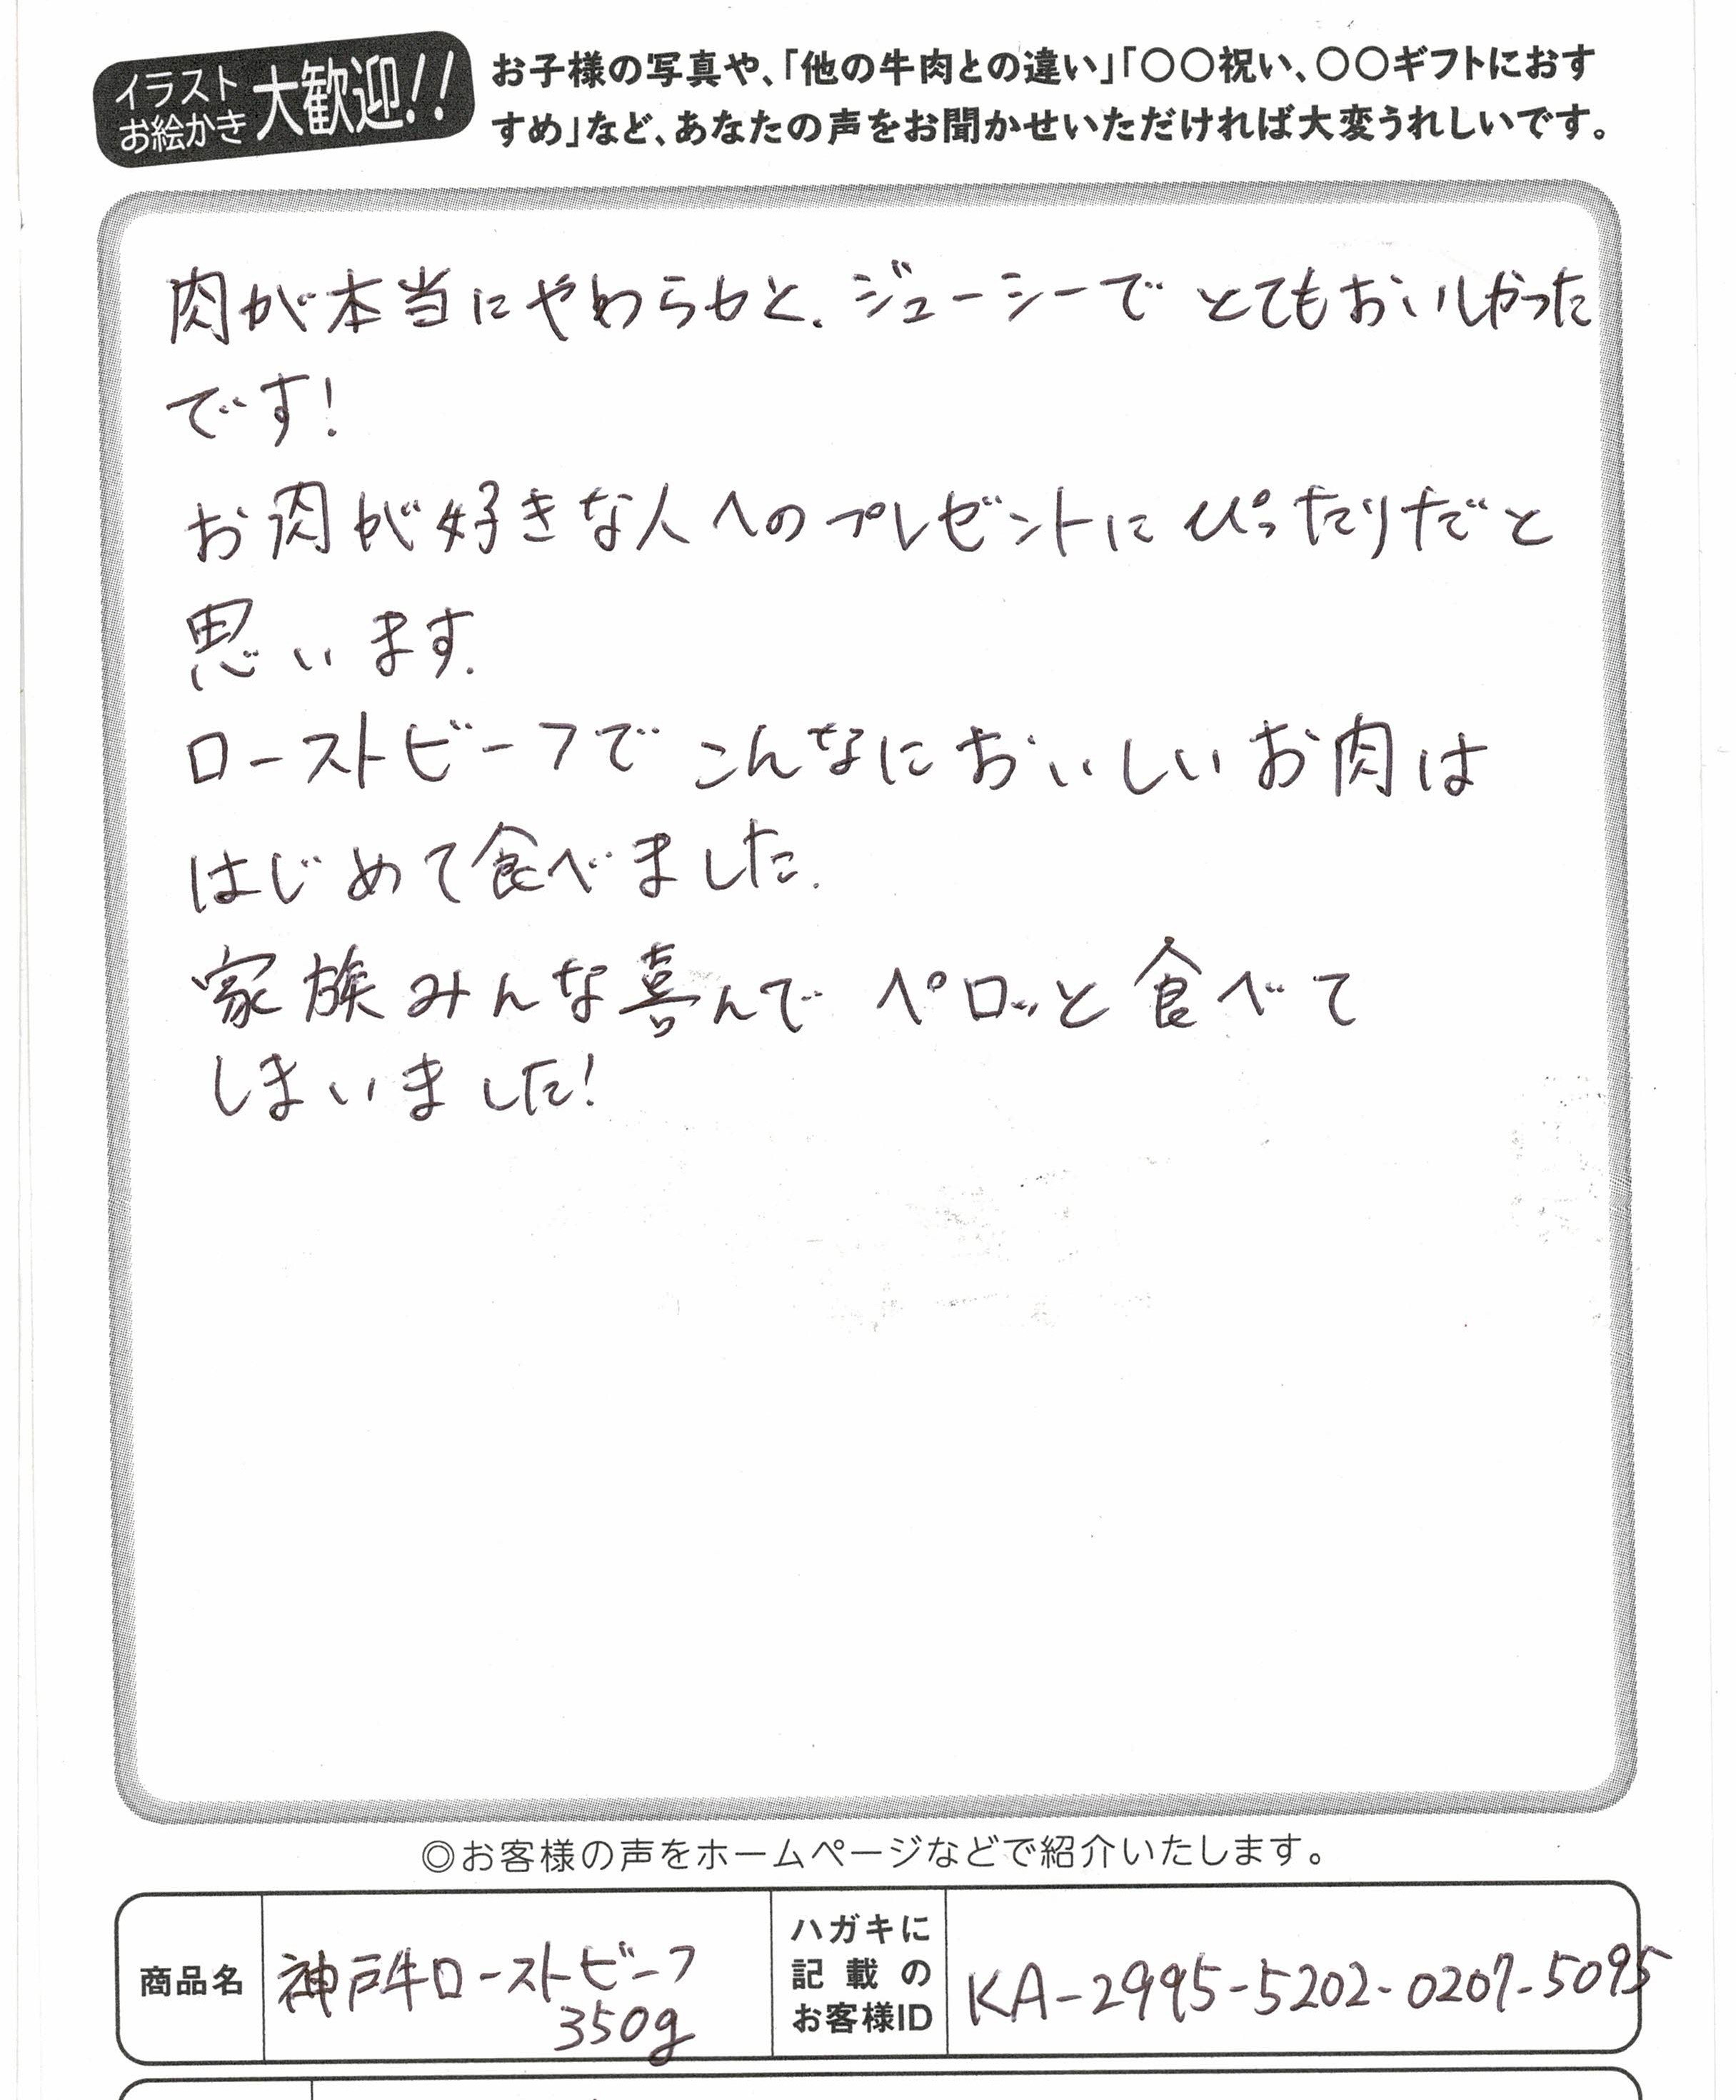 イラスト
お絵かき
大歓迎!!
お子様の写真や、「他の牛肉との違い」「〇〇祝い、〇〇ギフトにおす
すめ」など、あなたの声をお聞かせいただければ大変うれしいです。
肉が本当にやわらかと、ジューシーで とてもおいしかった
です!
お肉が好きな人へのプレゼントにぴったりだと
思います。
ローストビーフで こんなにおいしいお肉は
はじめて食べました。
家族みんな喜んで ペロッと食べて
しまいました!
◎お客様の声をホームページなどで紹介いたします。
商品名
神戸牛ローストビーフ
350g
ハガキに
記載の
お客様ID
KA-2995-5202-0207-5095